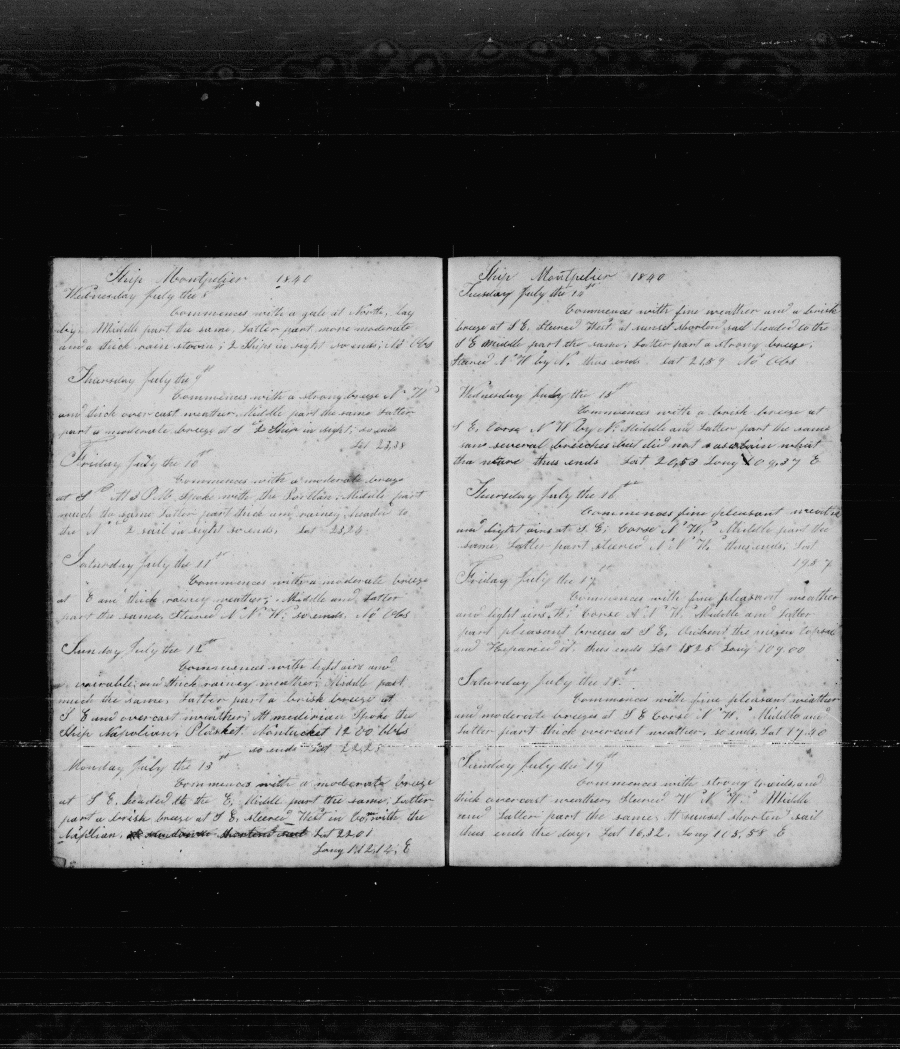 Ship Montpelier 1840
Wednesday July the 8th
Commences with a gale at North, lay
by. Middle part the same. Latter part more moderate
and a thick rain storm; 2 Ships in sight so ends; No Obs
Thursday July the 9th
Commences with a strong breeze N W
and thick over cast weather. Middle part the same Latter
part a moderate breeze at S 2 Ship in sight. so ends
Lat 22,38
Friday July the 10th
Commences with a moderate breeze
at S At 3 P.M. Spoke with the Middle part
much the same Latter part thick and rainey; headed to
the N 2 sail in sight so ends, Lat
Saturday July the 11th
Commences with a moderate breeze
at E and thick rainey weather; Middle and Latter
part the same, Steered N N W; so ends. No Obs
Sunday July the 12th
Commences with light airs and
vairable; and thick rainey weather; Middle part
much the same; Latter part a brisk breeze at
S E and overcast weather; At mederian Spoke the
Ship Napolian, Plasket Nantucket 1200 bbls
so ends Lat 22,25
Monday July the 13th
Commences with a moderate breeze
at S E, headed to the E, Middle part the same, Latter
part a brisk breeze at S E, steered West in Co, with the
Napolian, Lat 22,01
Long 112,12; E
Ship Montpelier 1840
Tuesday July the 14th
Commences with fine weather and a brisk
breeze at S E, Steered West at sunset shorten sail headed to the
S E middle part the same, Latter part a strong breeze,
Steered N W by N. thus ends Lat 21,59 No Obs
Wednesday July the 15th
Commences with a brisk breeze at
S E, Corse N W by N, Middle and Latter part the same
saw several briches but did not ascertain what
tha ware thus ends Lat 20,53 Long 109,37 E
Thursday July the 16th
Commences fine pleasant weather
and light airs at S E; Corse N W, Middle part the
same, Latter part steered N N W, thus ends; Lat
19,57
Friday July the 17th
Commences with fine pleasant weather
and light airs, W; Corse N N W, Middle and Latter
part pleasant breezes at S E, Unbent the mizen topsail
and Repaired it thus ends Lat 18 25 Long 109,00
Saturday July the 18th
Commences with fine pleasant weather
and moderate breezes at S E Corse N W, Middle and
Latter part thick overcast weather, so ends, Lat 17,40
Sunday July the 19th
Commences with strong traids, and
thick overcast weather, Steered W N W; Middle
and Latter part the same, At sunset shorten sail
thus ends the day, Lat 16,32, Long 108,58 E